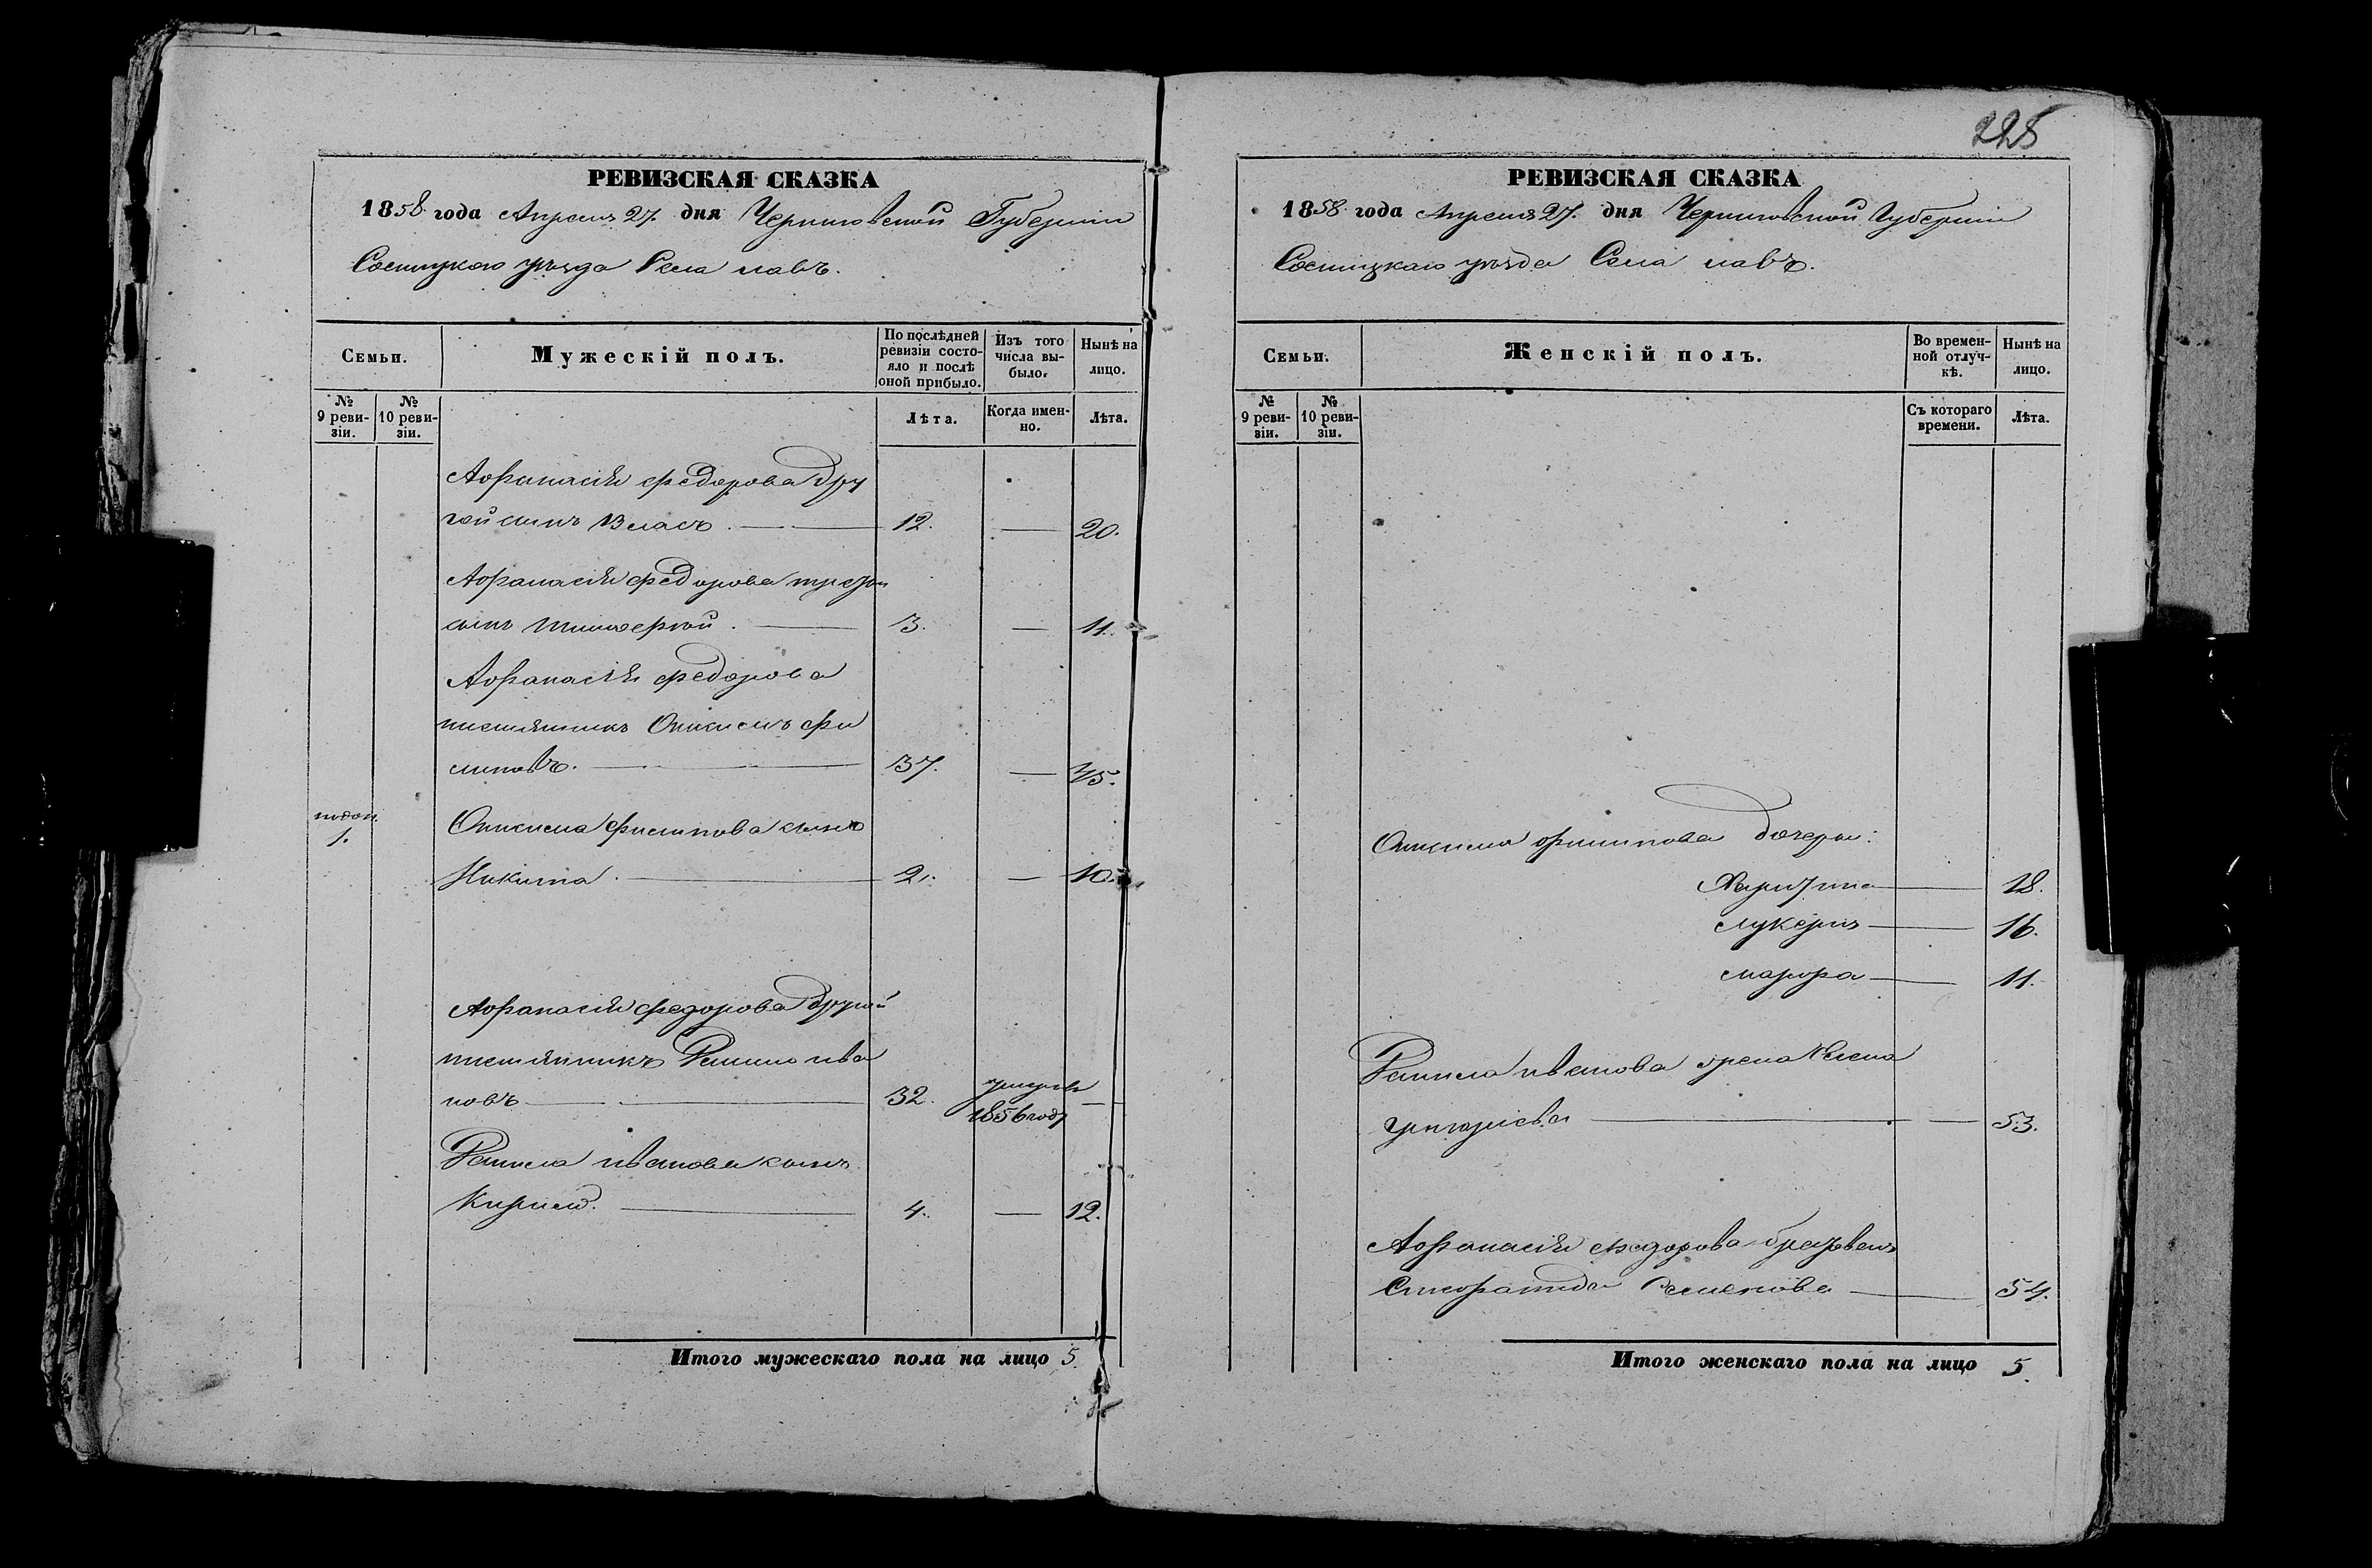 225
РЕВИЗСКАЯ СКАЗКА
1858 года Апреля 27. дня Черниговской Губернии
Сосницкаго уѣзда Села навъ.
Семьи.
Мужескій полъ.
По послѣдней ревизіи состояло и послѣ оной прибыло.
Изъ того числа выбыло.
Нынѣ на лицо.
№ 9 ревизіи.
№ 10 ревизіи.
Лѣта.
Когда именно.
Лѣта.
Афанасія Федорова дру
гой сынъ Власъ. — 12. — 20.
Афанасія Федорова третій
сынъ Тимофей. — 3. — 11.
Афанасія Федорова
племянникъ Онисимъ Фи
липовъ. — 37. — 45.
1.
Онисима Филипова сынъ
Никита. — 2. — 10.
Афанасія Федорова другой
племянникъ Данило Ива
новъ — 32. умеръ 1856 году —
Данила Иванова сынъ
Кирило. — 4. — 12.
Итого мужескаго пола на лицо 5.
РЕВИЗСКАЯ СКАЗКА
1858 года Апреля 27. дня Черниговской Губернии
Сосницкаго уѣзда Села навъ.
Семьи.
Женскій полъ.
Во временной отлучкѣ.
Нынѣ на лицо.
№ 9 ревизіи.
№ 10 ревизіи.
Съ котораго времени.
Лѣта.
Онисима Филипова дочери:
Харитина — 18.
Лукерья — 16.
Марфа — 11.
Данила Иванова жена Елена
Григориева — 53.
Афанасія Федорова
Семенова — 54.
Итого женскаго пола на лицо 5.